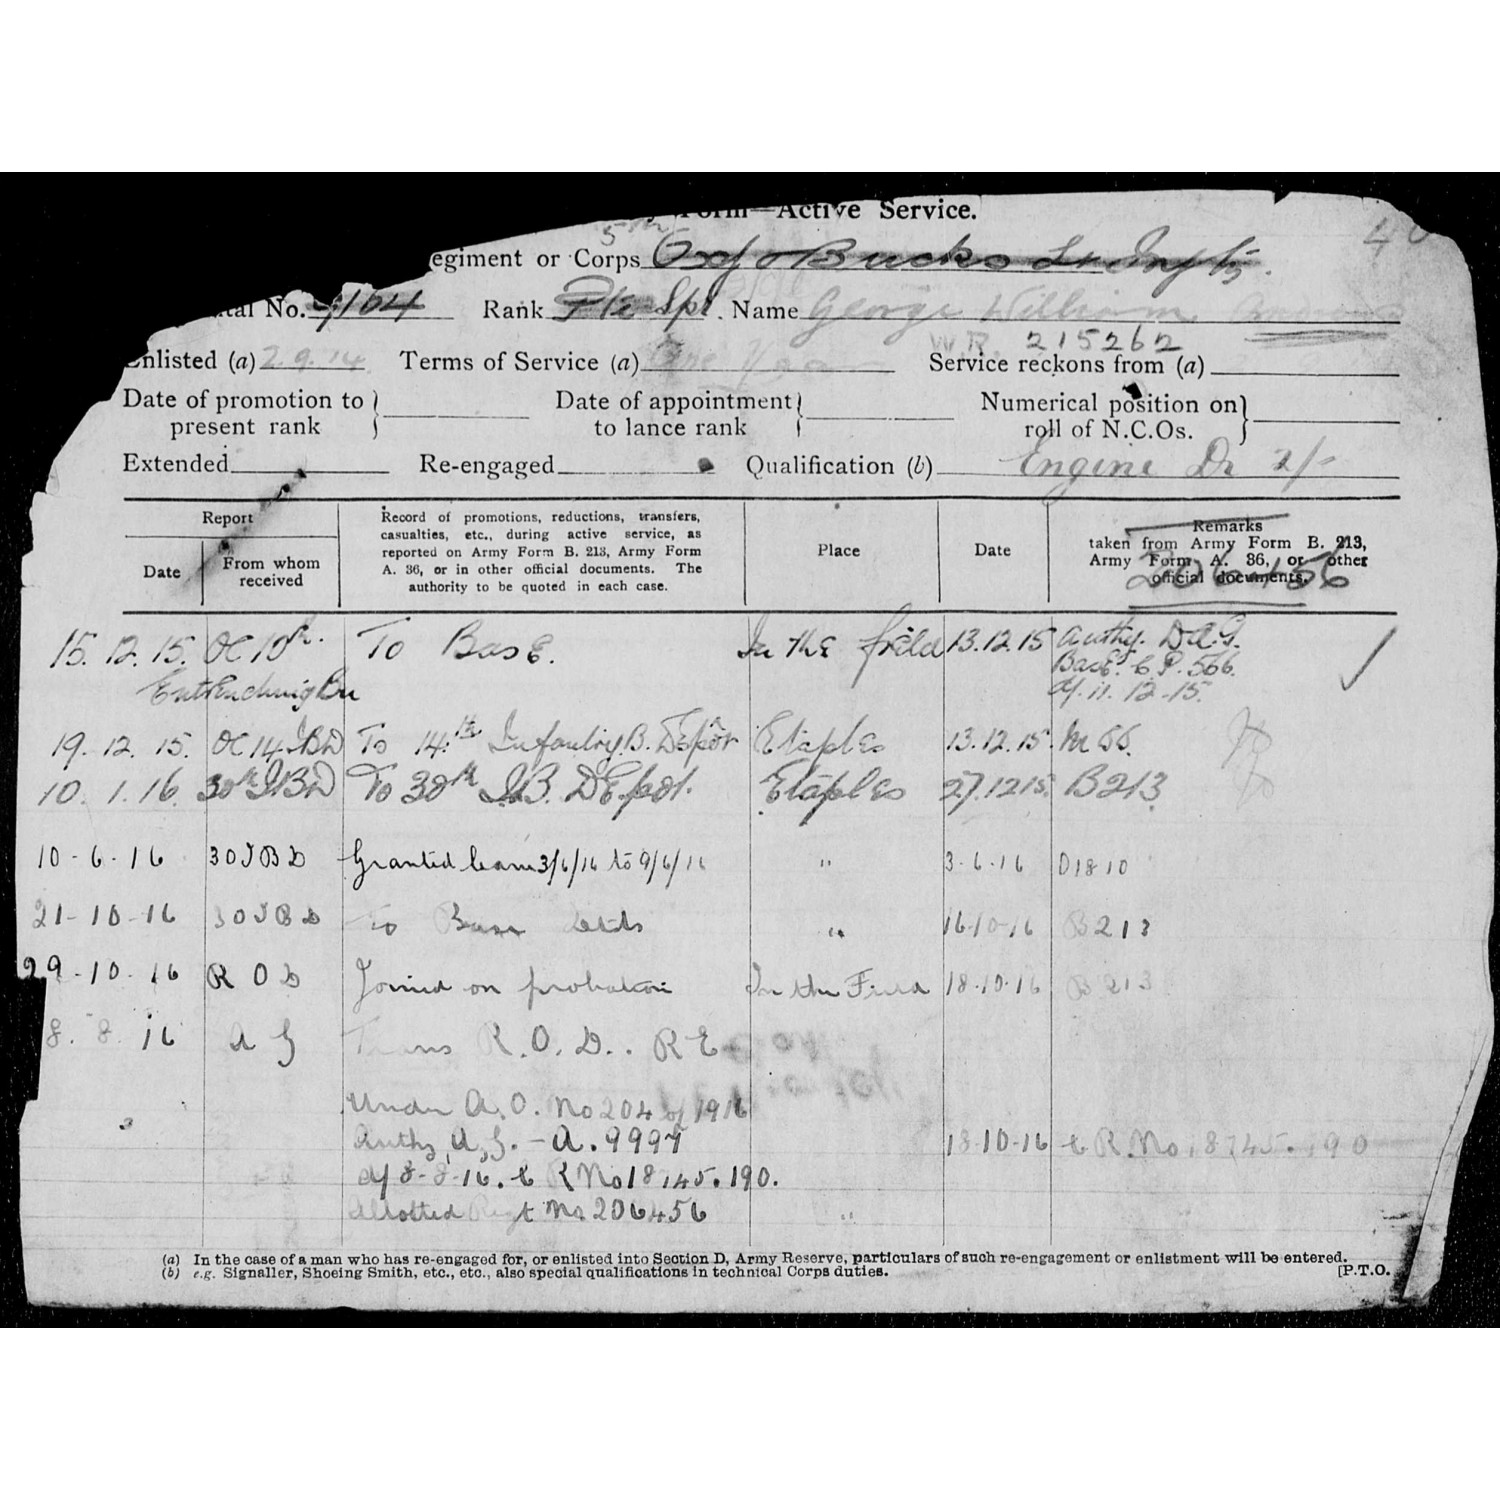 Form—Active Service.
5th
egiment or Corps Oxf o Bucks Lt Infty. 40
tal No. 9164 Rank Pte Spr Name George William
W.R. 215262
Enlisted (a) 2.9.14 Terms of Service (a) One Year Service reckons from (a)
Date of promotion to present rank Date of appointment to lance rank Numerical position on roll of N.C.Os.
Extended Re-engaged Qualification (b) Engine Dr 2/-
Report
Date
From whom received
Record of promotions, reductions, transfers, casualties, etc., during active service, as reported on Army Form B. 213, Army Form A. 36, or in other official documents. The authority to be quoted in each case.
Place
Date
Remarks
taken from Army Form B. 213, Army Form A. 36, or other official documents.
206456
15. 12. 15. OC 10th. To Base. In the field 13.12.15 Authy. D.A.G.
Entrenching Bn Base. C.P. 566.
d/. 11. 12-15.
19. 12. 15. OC 14 IBD To 14th Infantry B. Depôt Etaples 13.12.15.
10. 1. 16. 30th IBD To 30th I.B. DEpot. Etaples 27.12.15. B213
10-6-16 30 I B D Granted leave 3/6/16 to 9/6/16 " 3-6-16 D1810
21-10-16 30 I B D To Base Details " 16-10-16 B213
29-10-16 R O D Joined on probation In the Field 18-10-16 B213
8. 8. 16 A G Trans R.O.D. R E
Under A.O. No 204 of 1916
Authy A.G. - A. 9997 18-10-16 C R. No 18745.190
d/ 8-8-16. C R No 18745.190.
Allotted Regt No. 206456 "
(a) In the case of a man who has re-engaged for, or enlisted into Section D, Army Reserve, particulars of such re-engagement or enlistment will be entered.
(b) e.g. Signaller, Shoeing Smith, etc., etc., also special qualifications in technical Corps duties. [P.T.O.